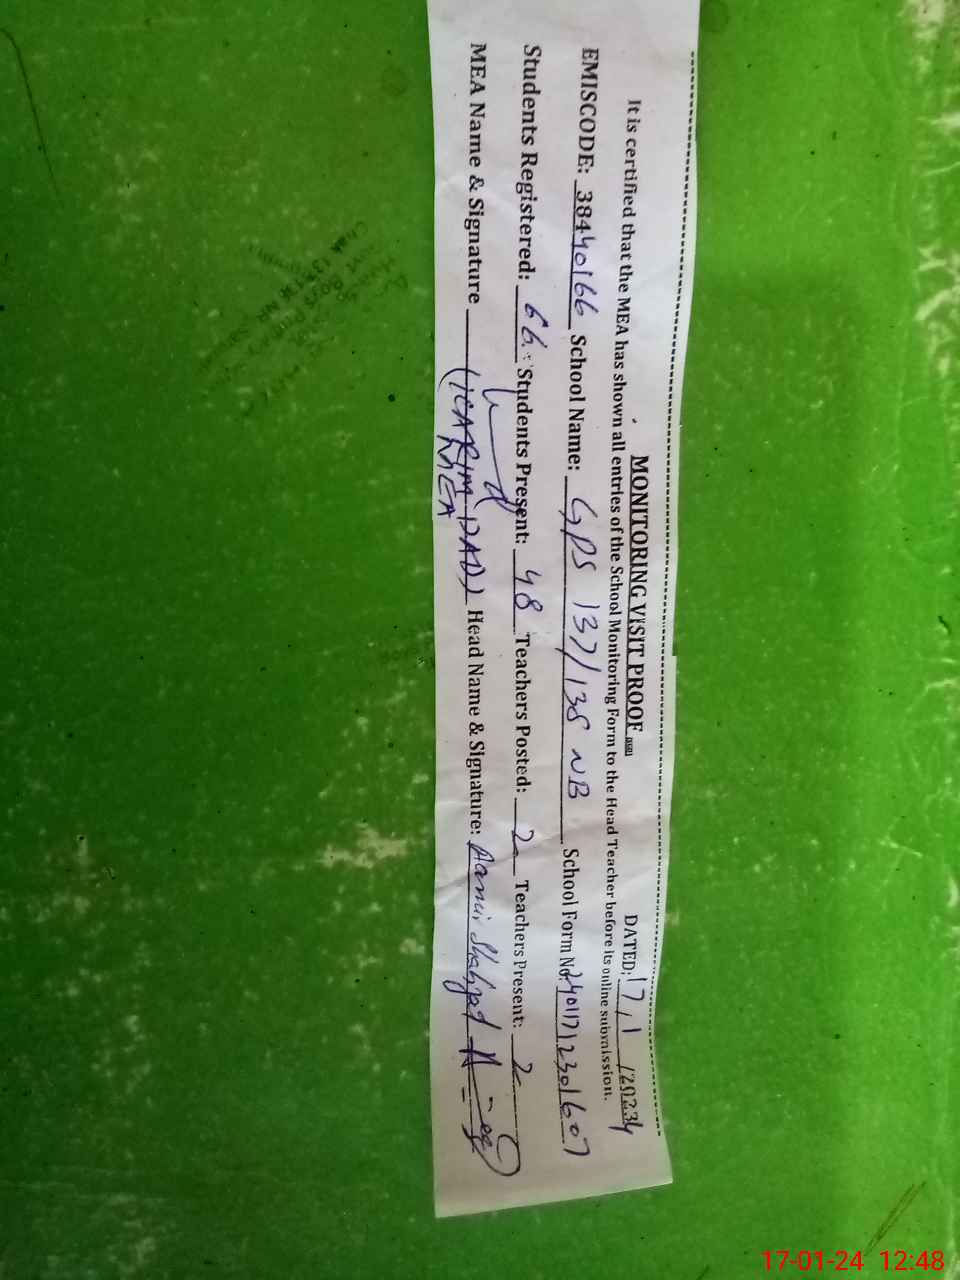 MONITORING VISIT PROOF
DATED: 17/1/20234
It is certified that the MEA has shown all entries of the School Monitoring Form to the Head Teacher before its online submission.
EMISCODE: 38440166 School Name: GPS 137/138 NB School Form No. 24011712301607
Students Registered: 66 Students Present: 48 Teachers Posted: 2 Teachers Present: 2
MEA Name & Signature (KARIM DAD) Head Name & Signature: Aamir Shahzad
MEA
17-01-24 12:48